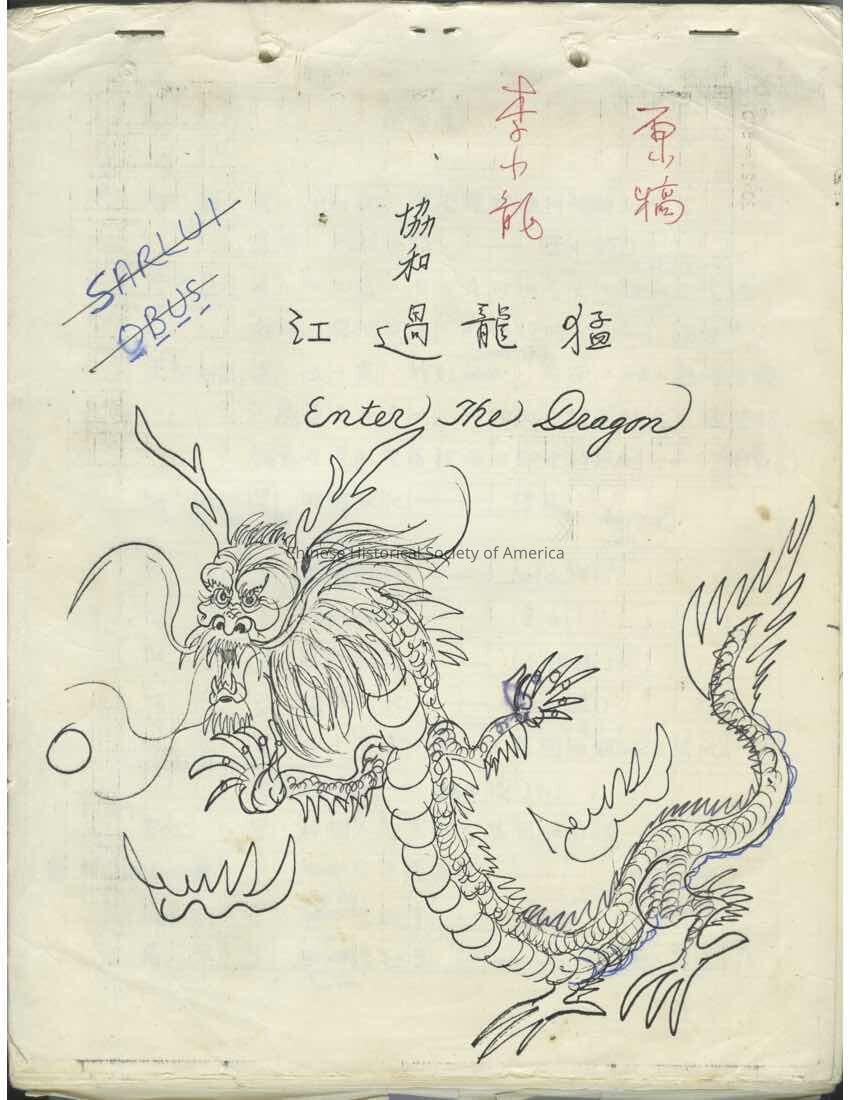 原稿
李小龍
協和
猛龍過江
SARLUI
OBUS
Enter The Dragon
Chinese Historical Society of America